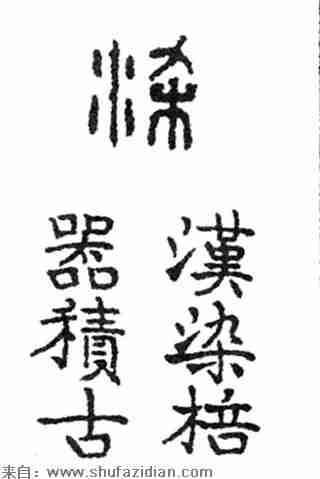 染
漢染桮
器積古
来自:www.shufazidian.com